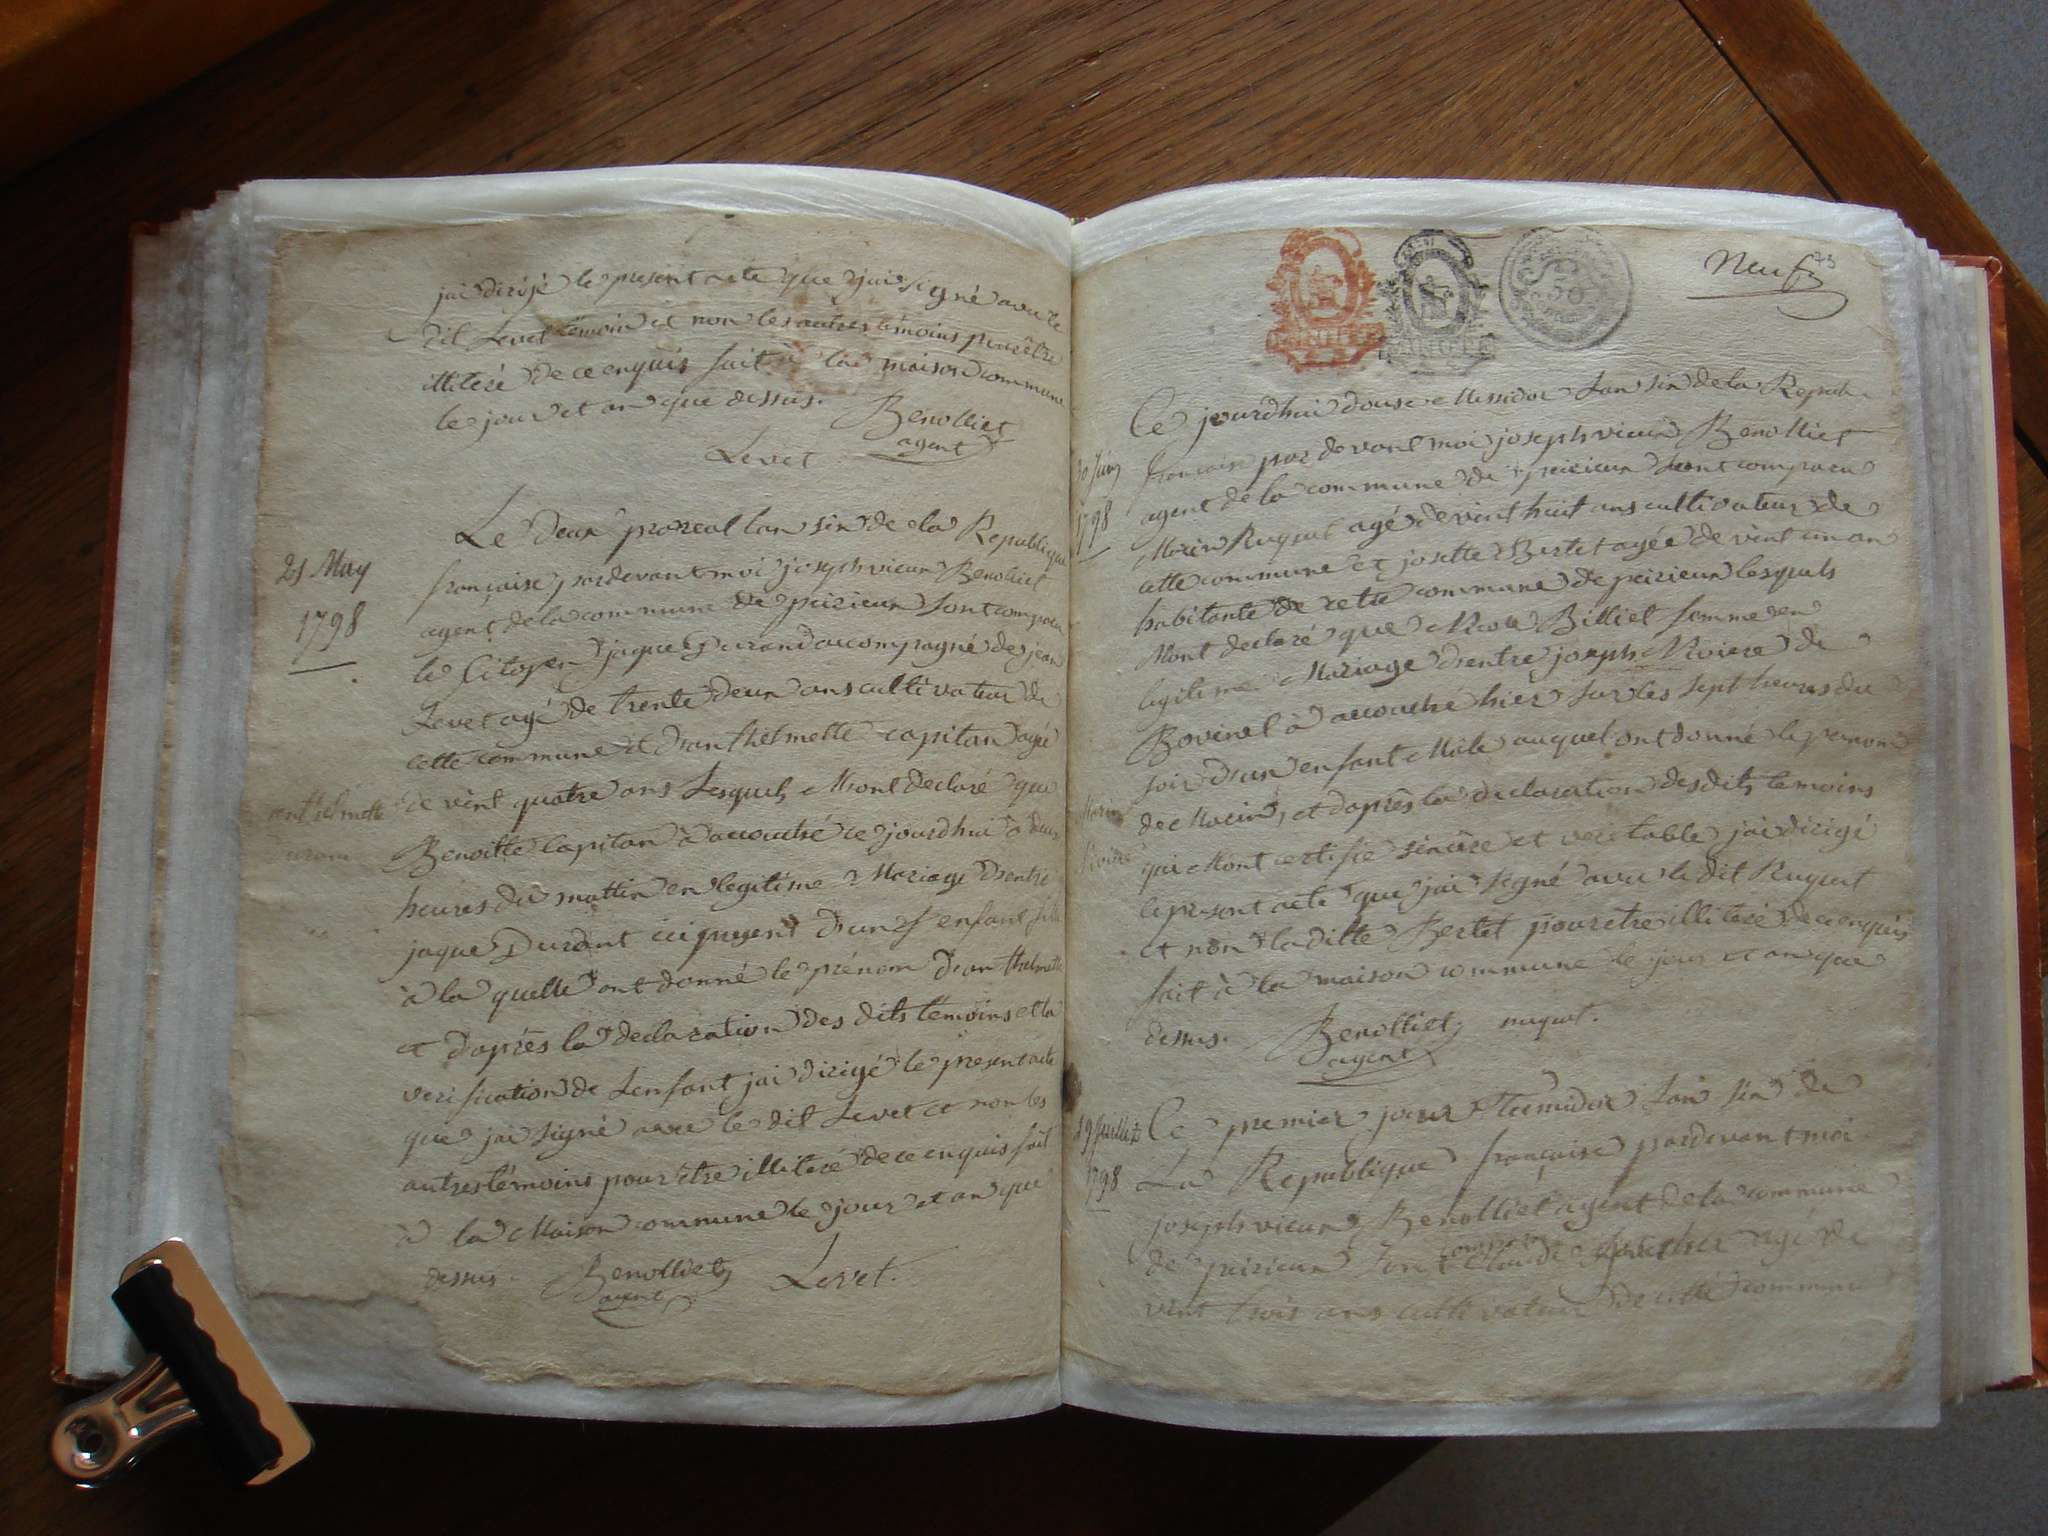 jai dirigé le present acte que jai signé avec le
dit Levet témoin et non les autres témoins pour être
illiteré de ce enquis fait à la maison commune
le jour et an que dessus. Benolliet
agent
Levet
21 May
1798
Le deux prereal lan six de la Republique
française pardevant moi joseph vieux Benolliet
agent de la commune de peirieux sont comparu
le Citoyen jaque Durand accompagné de jean
Levet agé de trente deux ans cultivateur de
cette commune et d'anthelmette capitan agé
de vint quatre ans Lesquels Mont declaré que
anthelmette
Duran
Benoitte Capitan à accouché ce jourdhui à deux
heures du mattin en legitime Mariage d'entre
jaque Durant ici present d'un enfant fille
à la quelle ont donné le prénom d'anthelmette
et d'après la declaration des dits témoins et la
verification de Lenfant jai dirigé le present acte
que jai signé avec le dit Levet et non les
autres témoins pour être illiteré de ce enquis fait
à la Maison commune le jour et an que
dessus. Benolliet Levet.
agent
Neuf
73
50
30 Juin
1798
Ce jourdhui douse Messidor Lan six de la Republ.
française par devant moi joseph vieux Benolliet
agent de la commune de peirieux sont comparu
Marin Ruquet agé de vint huit ans cultivateur de
cette commune et josette Bertet agée de vint un an
habitante de cette commune de peirieux lesquels
Mont declaré que Billiet femme en
legitime Mariage d'entre joseph Riviere de
Bovinel à accouché hier sur les sept heures du
soir d'un enfant Mâle auquel ont donné le prenom
Marin
Riviere
de Marin, et daprès la declaration desdits temoins
qui Mont certifie sincère et veritable jai dirigé
le present acte que jai signé avec le dit Ruquet
et non la ditte Bertet pour etre illiteré de ce enquis
fait à la maison commune le jour et an que
dessus. Benolliet ruquet.
agent
19 Juillet
1798
Ce premier jour Termidor Lan six de
La Republique française pardevant moi
joseph vieux Benolliet agent de la commune
comparu
de peirieux sont Claude agé de
vint trois ans cultivateur de cette commune